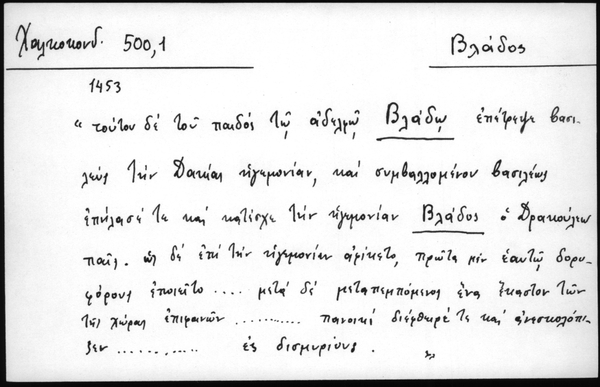 Χαλκοκονδ. 500,1 Βλάδος
1453
"τούτου δέ τοῦ παιδός τῷ ἀδελφῷ Βλάδῳ ἐπέτρεψε βασι-
λεύς τήν Δακίας ἡγεμονίαν, καί συμβαλλομένου βασιλέως
ἐπήλασέ τε καί κατέσχε τήν ἡγεμονίαν Βλάδος ὁ Δρακούλεω
παῖς. ὡς δέ ἐπί τήν ἡγεμονίαν ἀφίκετο, πρῶτα μέν ἑαυτῷ δορυ-
φόρους ἐποιεῖτο .... μετά δέ μεταπεμπόμενος ἕνα ἕκαστον τῶν
τῆς χώρας ἐπιφανῶν ........... πανοικί διέφθειρέ τε καί ἀνεσκολόπι-
ζεν ............ ἐς δισμυρίους.